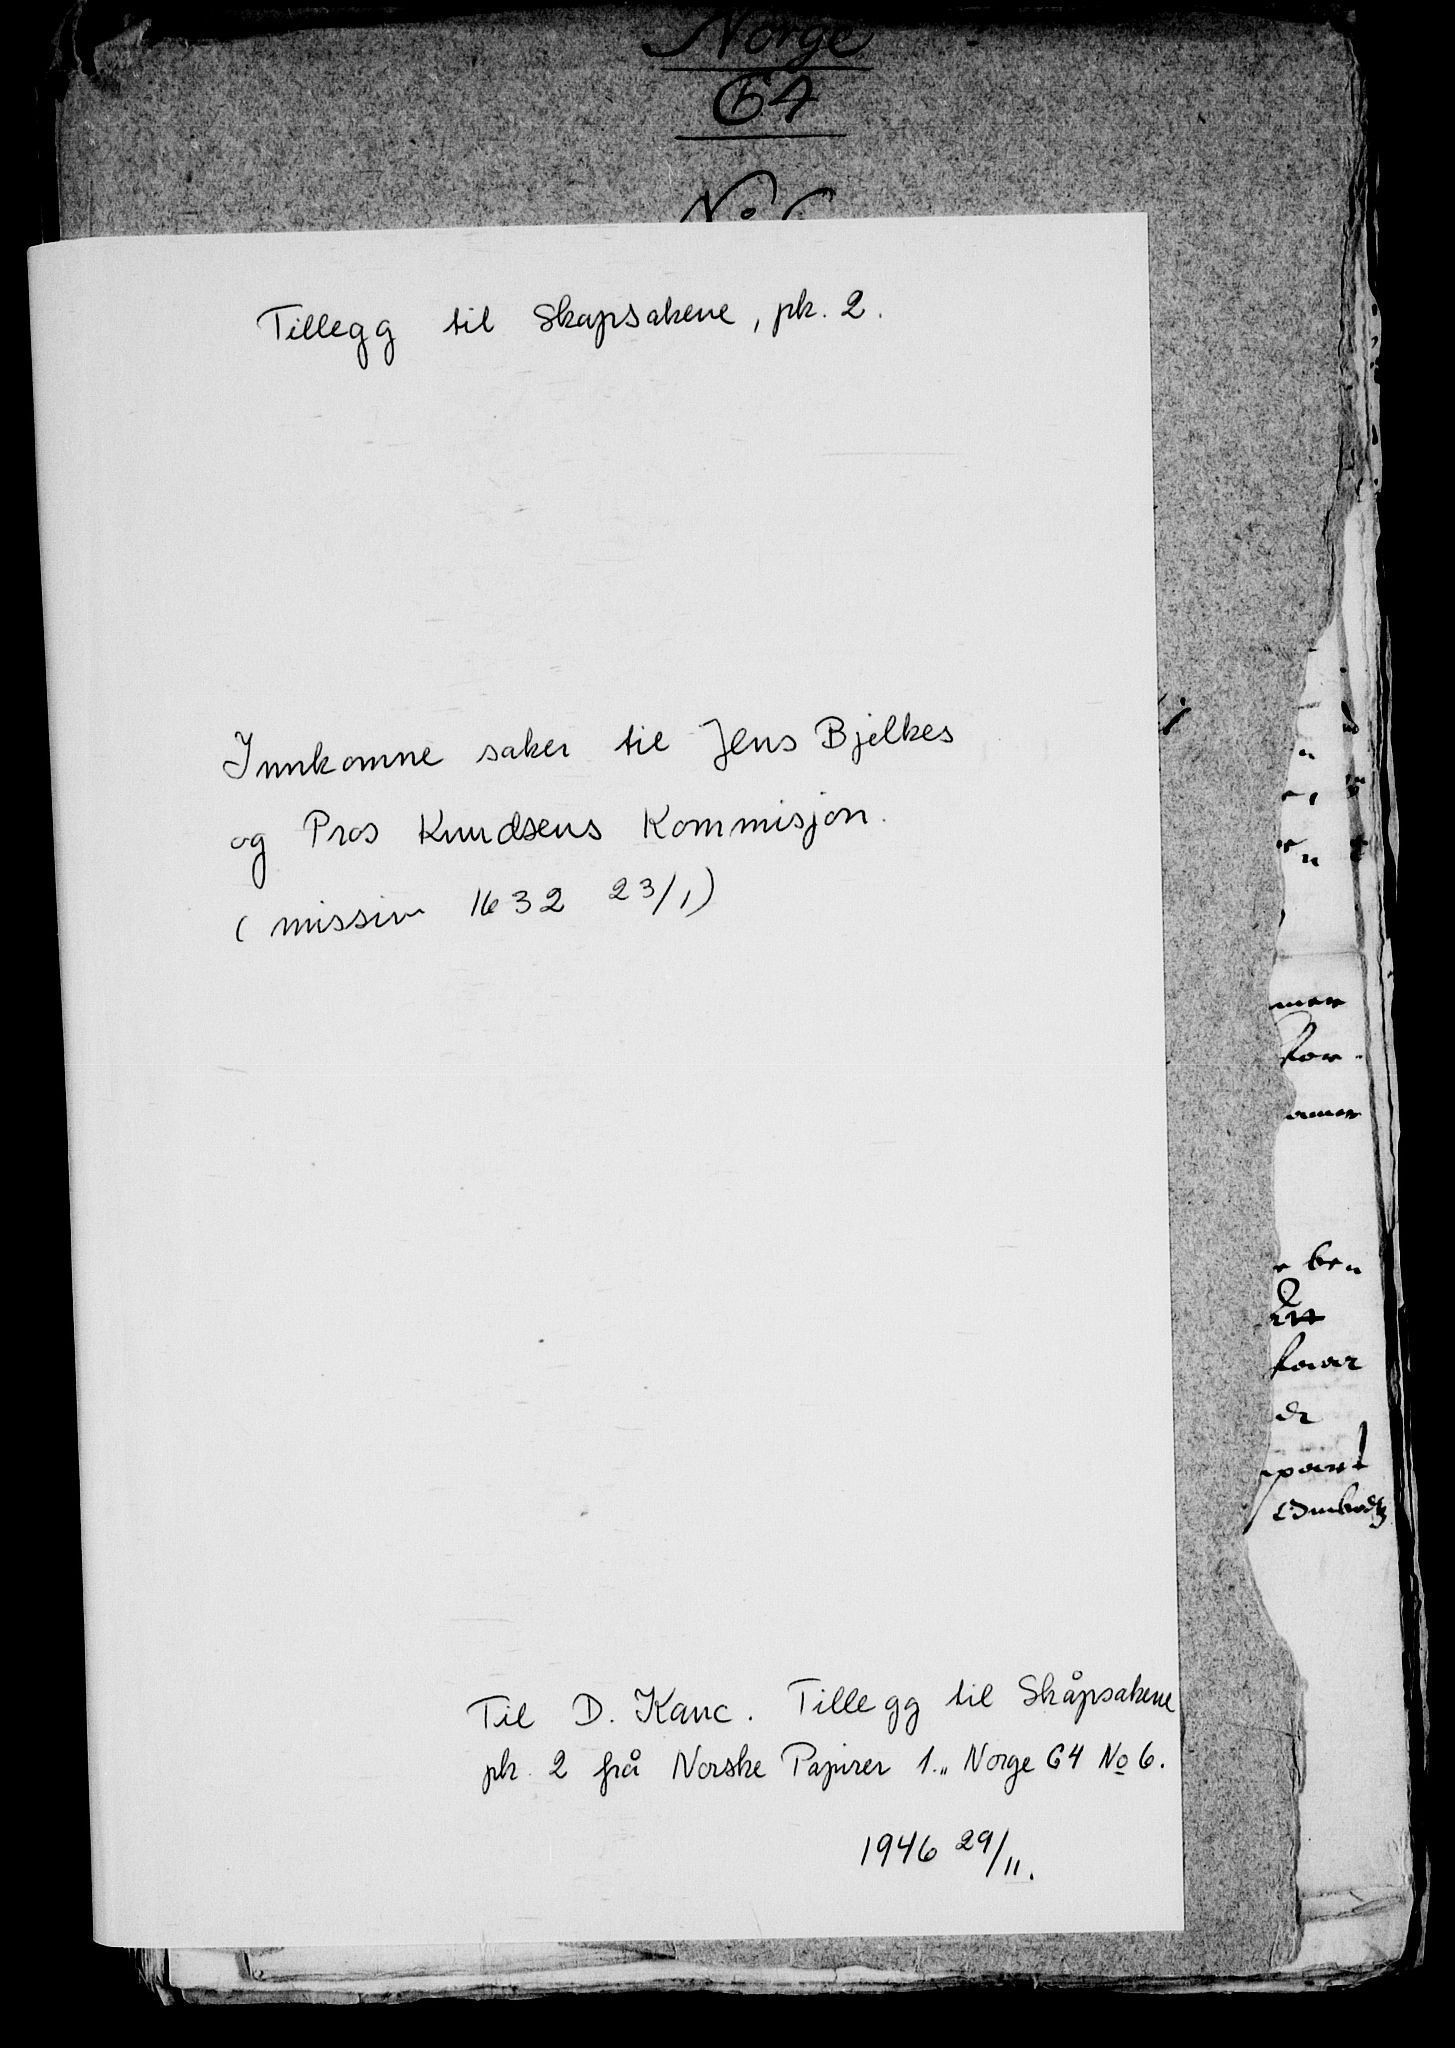 Norge
64
No 6
Tillegg til Skapsakene, pk. 2.
Innkomne saker til Jens Bjelkes
og Pros Knudsens Kommisjon.
(missiv 1632 23/1)
mer
for
ben
part
Til D. Kanc. Tillegg til Skåpsakene
pk. 2 frå Norske Papirer 1.. Norge 64 No 6.
1946 29/11.